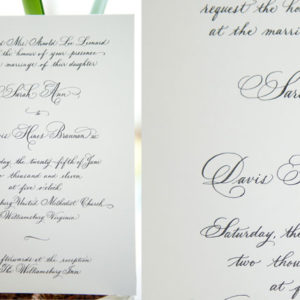 d Mrs. Arnold Lee Leonard
the honour of your presence
marriage of their daughter
Sarah Ann
to
Davis Hines Brannan
day, the twenty-fifth of June
thousand and eleven
at five o'clock
sburg United Methodist Church
Williamsburg, Virginia
afterwards at the reception
The Williamsburg Inn
request the ho
at the marri
Sar
Davis
Saturday, the
two thou
at f